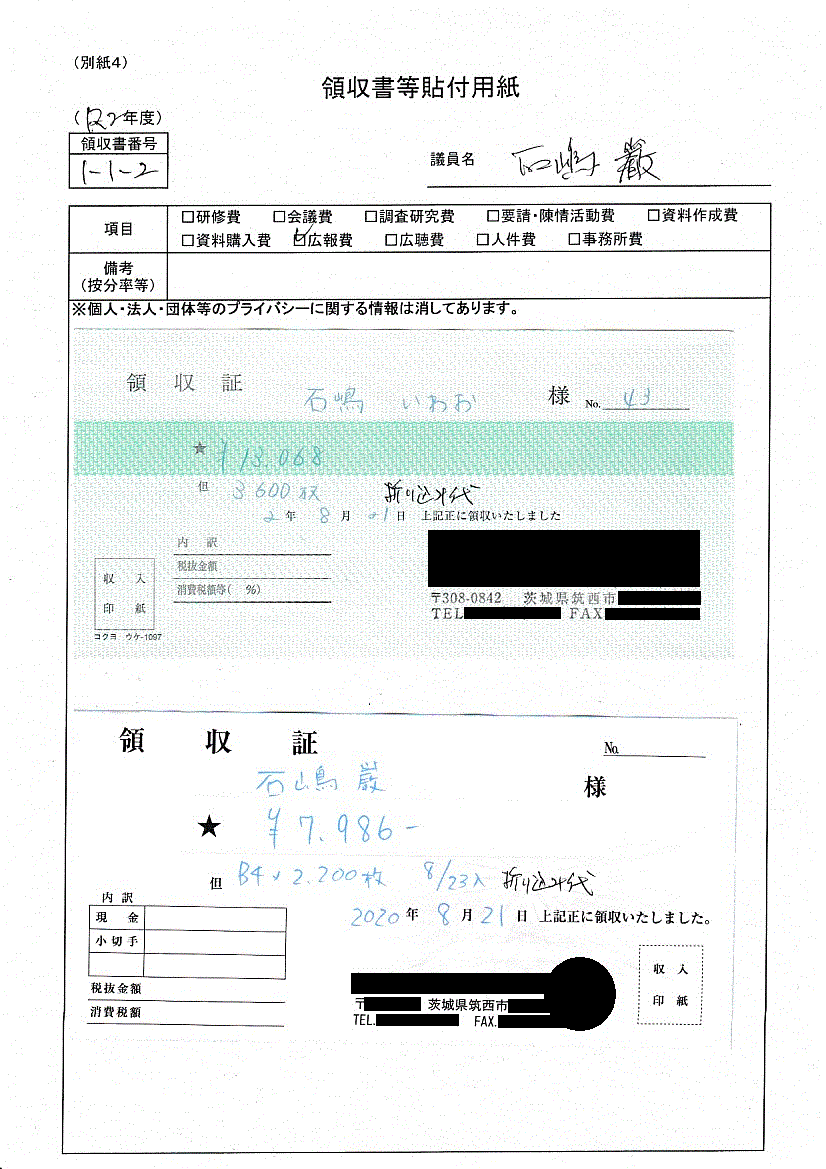 （別紙４）
領収書等貼付用紙
（R2年度）
領収書番号
1-1-2
議員名 石嶋 巌
項目
□研修費 □会議費 □調査研究費 □要請・陳情活動費 □資料作成費
□資料購入費 ☑広報費 □広聴費 □人件費 □事務所費
備考
（按分率等）
※個人・法人・団体等のプライバシーに関する情報は消してあります。
領収証
石嶋 いわお 様 No. 43
★ ¥13,068
但 3600枚 折り込み代
2年 8月 21日 上記正に領収いたしました
内訳
税抜金額
消費税額等( %)
収入
印紙
コクヨ ウケ-1097
〒308-0842 茨城県筑西市
TEL FAX
領収証 No.
石嶋 巌 様
★ ¥7,986-
但 B4 2,200枚 8/23入 折り込み代
2020年 8月 21日 上記正に領収いたしました。
内訳
現金
小切手
税抜金額
消費税額
〒 茨城県筑西市
TEL. FAX.
収入
印紙